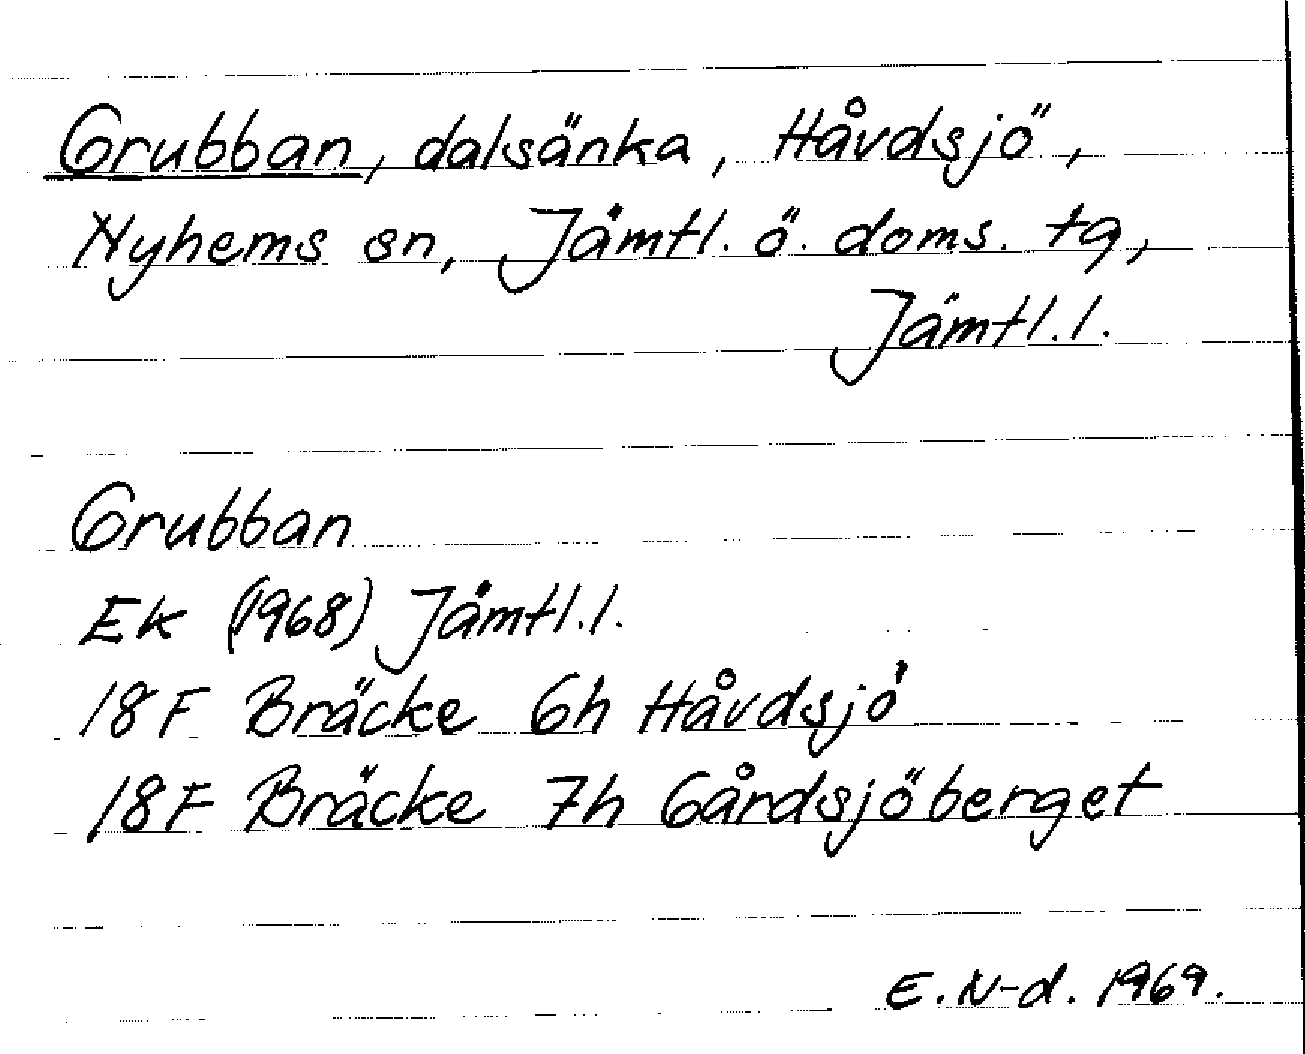 Grubban, dalsänka, Håvdsjö,
Nyhems sn, Jämtl. ö. doms. tg,
Jämtl.l.
Grubban
EK (1968) Jämtl.l.
18F Bräcke 6h Håvdsjö
18F Bräcke 7h Gårdsjöberget
E.N-d. 1969.